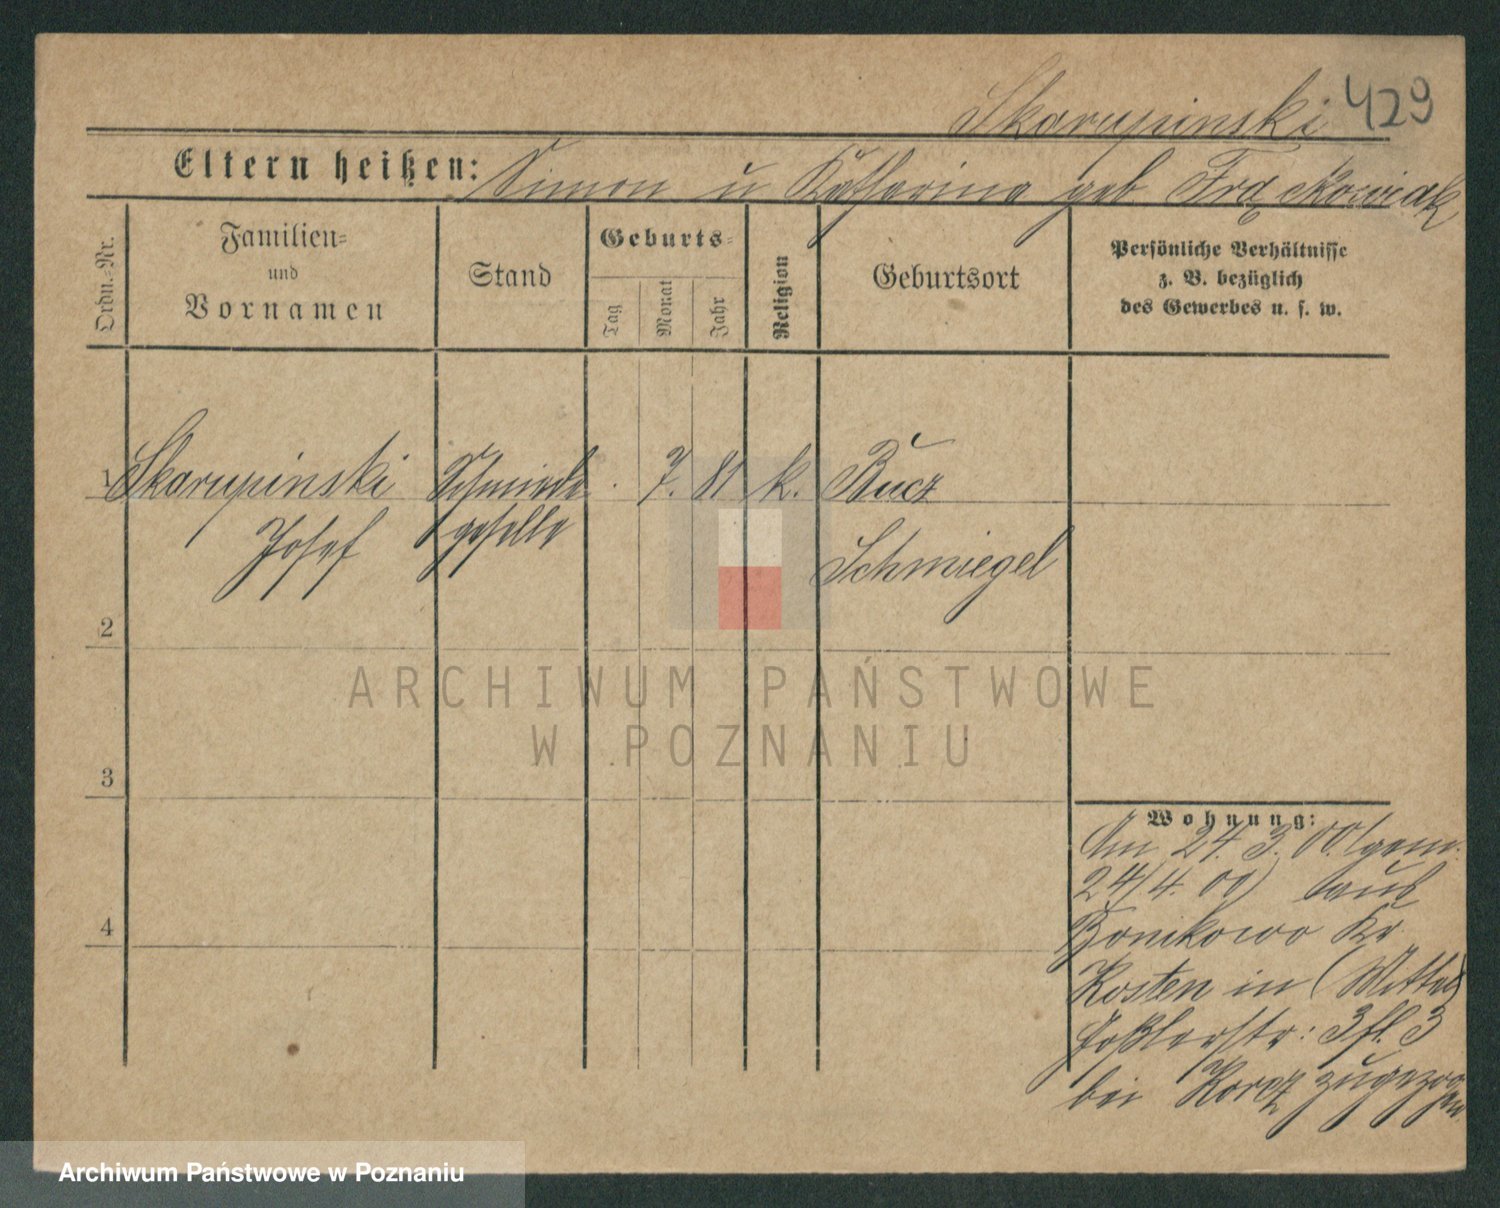 Skarupinski 429
Eltern heißen: Simon u Katharina geb Frąckowiak
Ordn.-Nr.
Familien-
und
Vornamen
Stand
Geburts-
Tag
Monat
Jahr
Religion
Geburtsort
Persönliche Verhältnisse
z. B. bezüglich
des Gewerbes u. s. w.
1 Skarupinski Schmiede . 7. 81 k. Bucz
Josef geselle Schmiegel
2
3
4
Wohnung:
Am 24. 3. 00 (gem.
24/4. 00) aus
Bonikowo Kr
Kosten in
3 fl. 3
bei Korcz zugezogen
ARCHIWUM PAŃSTWOWE
W POZNANIU
Archiwum Państwowe w Poznaniu